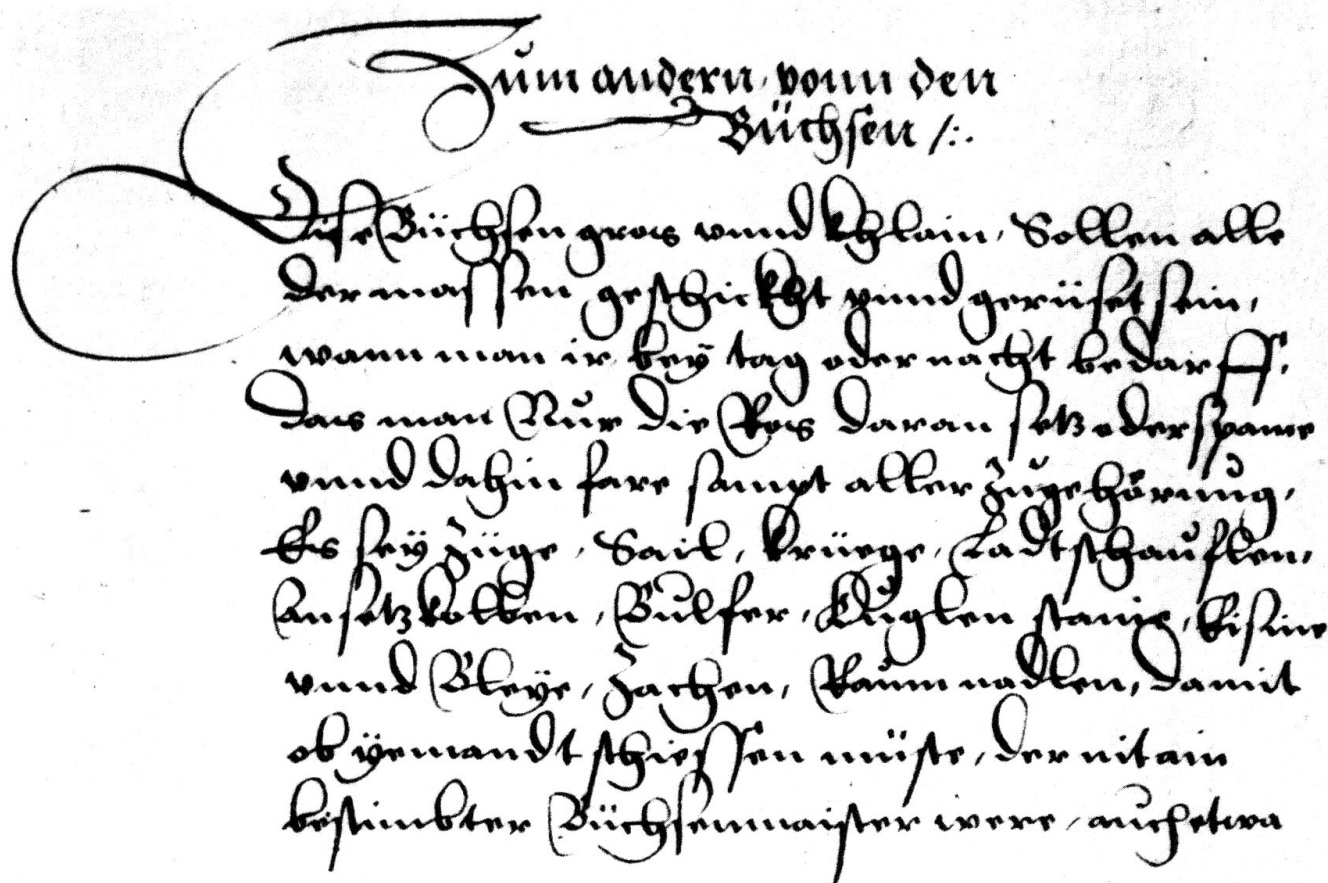 Zum andern, vonn den
Büchsen /:.
Dise Büchsen gros vnnd khlain, Sollen alle
dermassen geschickht vnnd gerüset sein,
wann man ir bey tag oder nacht bedarff,
das man Nur die Ros daran setz oder spanne
vnnd dahin fare sampt aller Zugehörung,
Es sey Züge, Sail, krüege, Ladtschauflen,
Ansetzkolben, Bulfer, Kuglen stanie, Eisine
vnnd Bleye, Zachen, Raumnadlen, damit
ob yemandt schiessen müste, der nit ain
bestimbter Büchsenmaister were, auch etwa